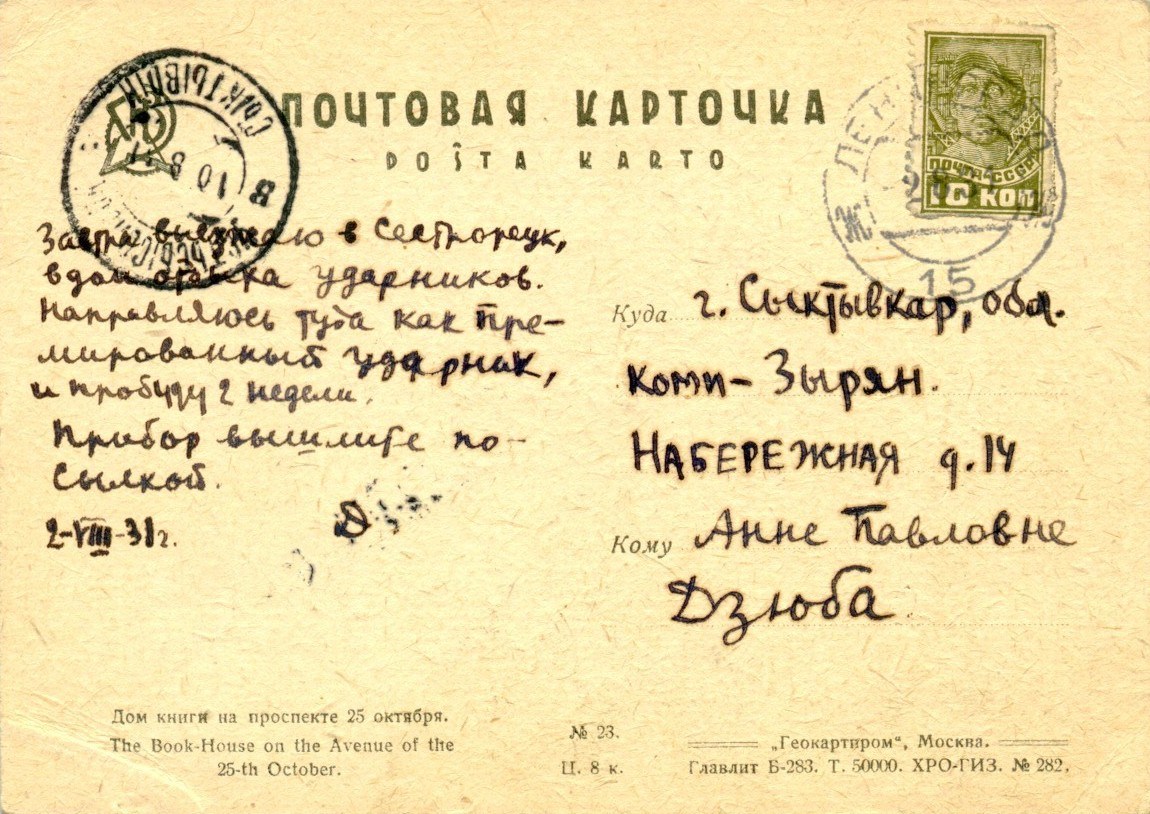 ПОЧТОВАЯ КАРТОЧКА
POŜTA KARTO
ПОЧТА СССР
10 КОП
15
СЫКТЫВКАР
10 8
В
Завтра выезжаю в Сестрорецк,
в дом отдыха ударников.
Направляюсь туда как пре-
мированный ударник,
и пробуду 2 недели.
Прибор вышлите по-
сылкой.
2-VIII-31г.
Куда г. Сыктывкар, обл.
Коми-Зырян.
НАБЕРЕЖНАЯ д. 14
Кому Анне Павловне
Дзюба
Дом книги на проспекте 25 октября.
The Book-House on the Avenue of the
25-th October.
№ 23.
Ц. 8 к.
„Геокартпром“, Москва.
Главлит Б-283. Т. 50000. ХРО-ГИЗ. № 282.